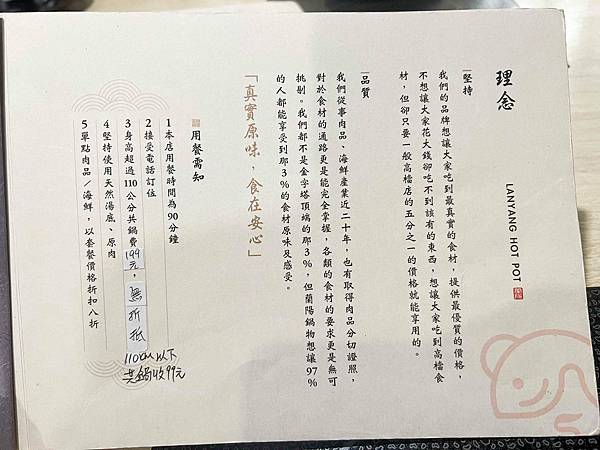 理念
LANYANG HOT POT
堅持
我們的品牌想讓大家吃到最真實的食材，提供最優質的價格，
不想讓大家花大錢卻吃不到該有的東西，想讓大家吃到高檔食
材，但卻只要一般高檔店的五分之一的價格就能享用的。
品質
我們從事肉品、海鮮產業近二十年，也有取得肉品分切證照，
對於食材的通路更是能完全掌握，各類的食材的要求更是無可
挑剔。我們都不是金字塔頂端的那3%，但蘭陽鍋物想讓97%
的人都能享受到那3%的食材原味及感受。
「真實原味，食在安心」
用餐需知
1本店用餐時間為90分鐘
2接受電話訂位
3身高超過110公分共鍋費199元，無折抵
110cm以下
共鍋收99元
4堅持使用天然湯底、原肉
5單點肉品／海鮮，以套餐價格折扣八折